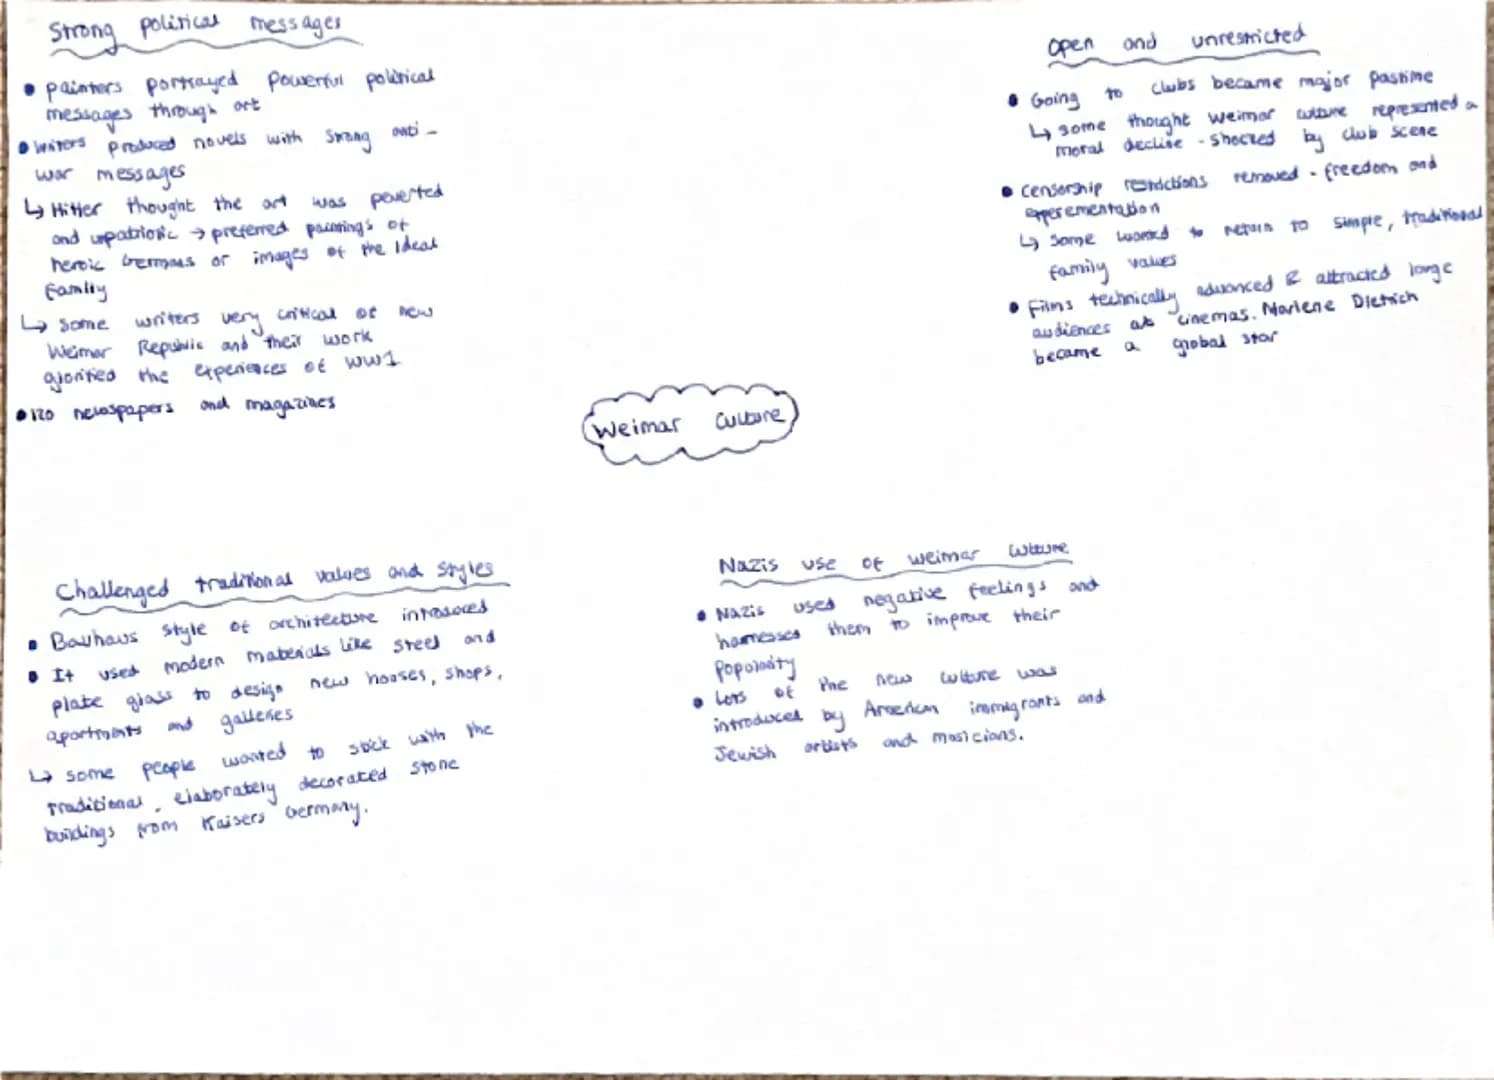 Strong political messages
• painters portrayed powerful political
messages through art
• writers produced novels with strong anti-
war messages
↳ Hitler thought the art was peverted
and unpatriotic → preferred paintings of
heroic Germans or images of the ideal
family
↳ some writers very critical of new
Weimar Republic and their work
glorified the experiences of WW1
• 120 newspapers and magazines
Open and unrestricted
• Going to clubs became major pastime
↳ some thought weimar culture represented a
moral decline - shocked by club scene
• censorship restrictions removed - freedom and
experementation
↳ some wanted to return to simple, traditional
family values
• Films technically advanced & attracted large
audiences at cinemas. Marlene Dietrich
became a global star
Weimar Culture
Challenged traditional values and styles
• Bauhaus style of architecture introduced
• It used modern materials like steel and
plate glass to design new houses, shops,
apartments and galleries
↳ some people wanted to stick with the
traditional, elaborately decorated stone
buildings from Kaisers Germany.
Nazis use of weimar culture
• Nazis used negative feelings and
harnesses them to improve their
popularity
• Lots of the new culture was
introduced by American immigrants and
Jewish artists and musicians.